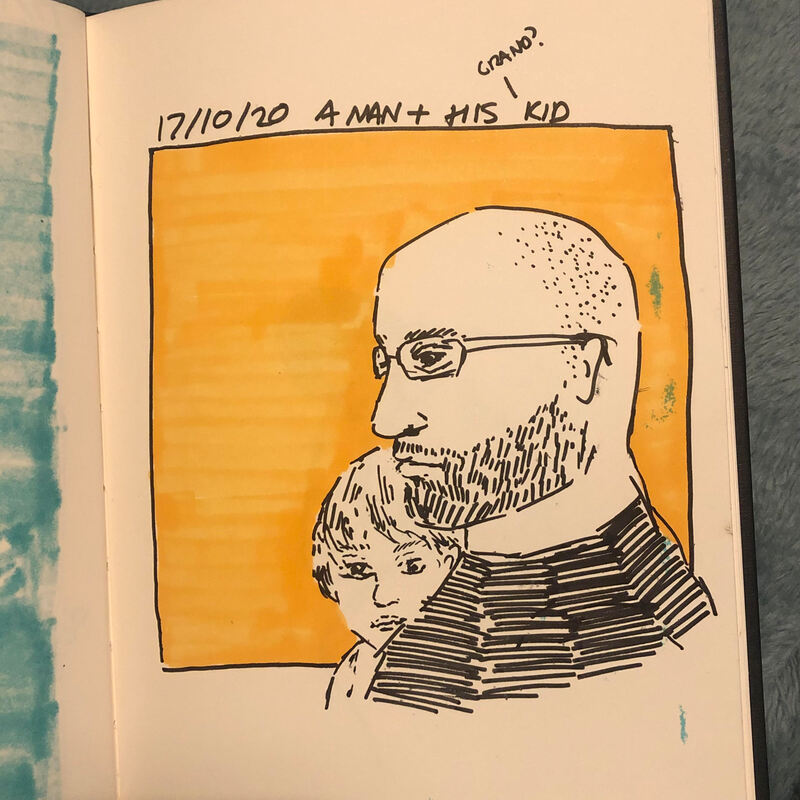 GRAND?
17/10/20 A MAN + HIS KID